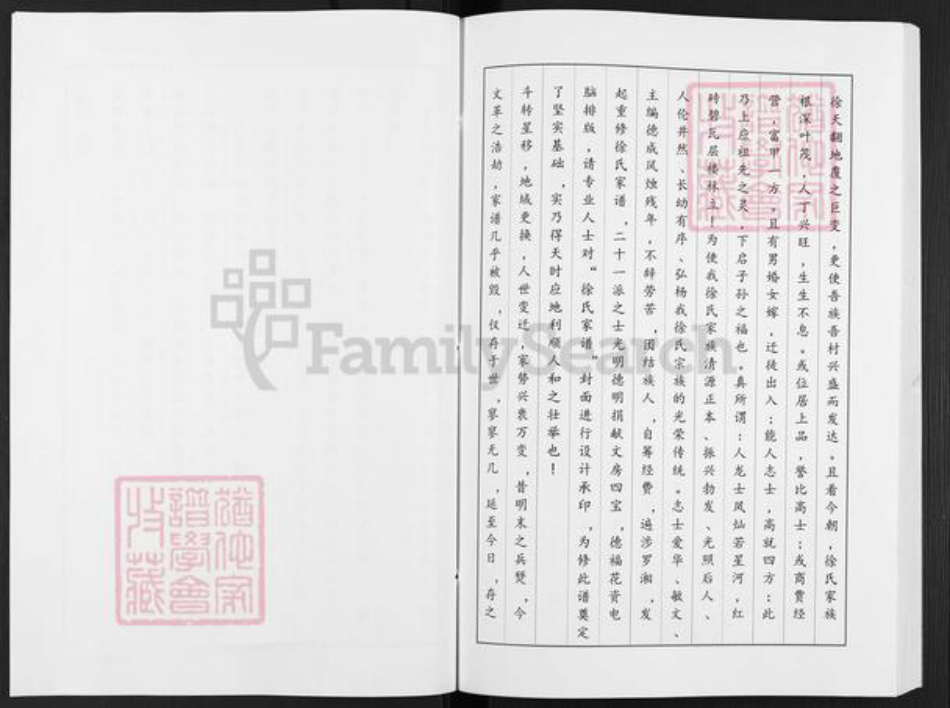 徐天翻地覆之巨变，更使吾族吾村兴盛而发达。且看今朝，徐氏家族
根深叶茂，人丁兴旺，生生不息。或位居上品，誉比高士；或商贾经
营，富甲一方。且有男婚女嫁，迁徒出入；能人志士，高就四方；此
乃上应祖先之灵，下启子孙之福也。真所谓：人龙士凤灿若星河，红
砖碧瓦层楼林立！为使我徐氏家族清源正本、振兴勃发、光照后人、
人伦井然、长幼有序、弘杨我徐氏宗族的光荣传统。志士爱华、敏文、
主编德成风烛残年，不辞劳苦，团结族人，自筹经费，遍涉罗湘，发
起重修徐氏家谱，二十一派之士光明德明捐献文房四宝，德福花资电
脑排版，请专业人士对“徐氏家谱”封面进行设计承印，为修此谱奠定
了坚实基础，实乃得天时应地利顺人和之壮举也！
斗转星移，地域更换，人世变迁，家势兴衰万变，昔明末之兵燹，今
文革之浩劫，家谱几乎被毁，仅存于世，寥寥无几，延至今日，存之
FamilySearch
譜學會
收藏